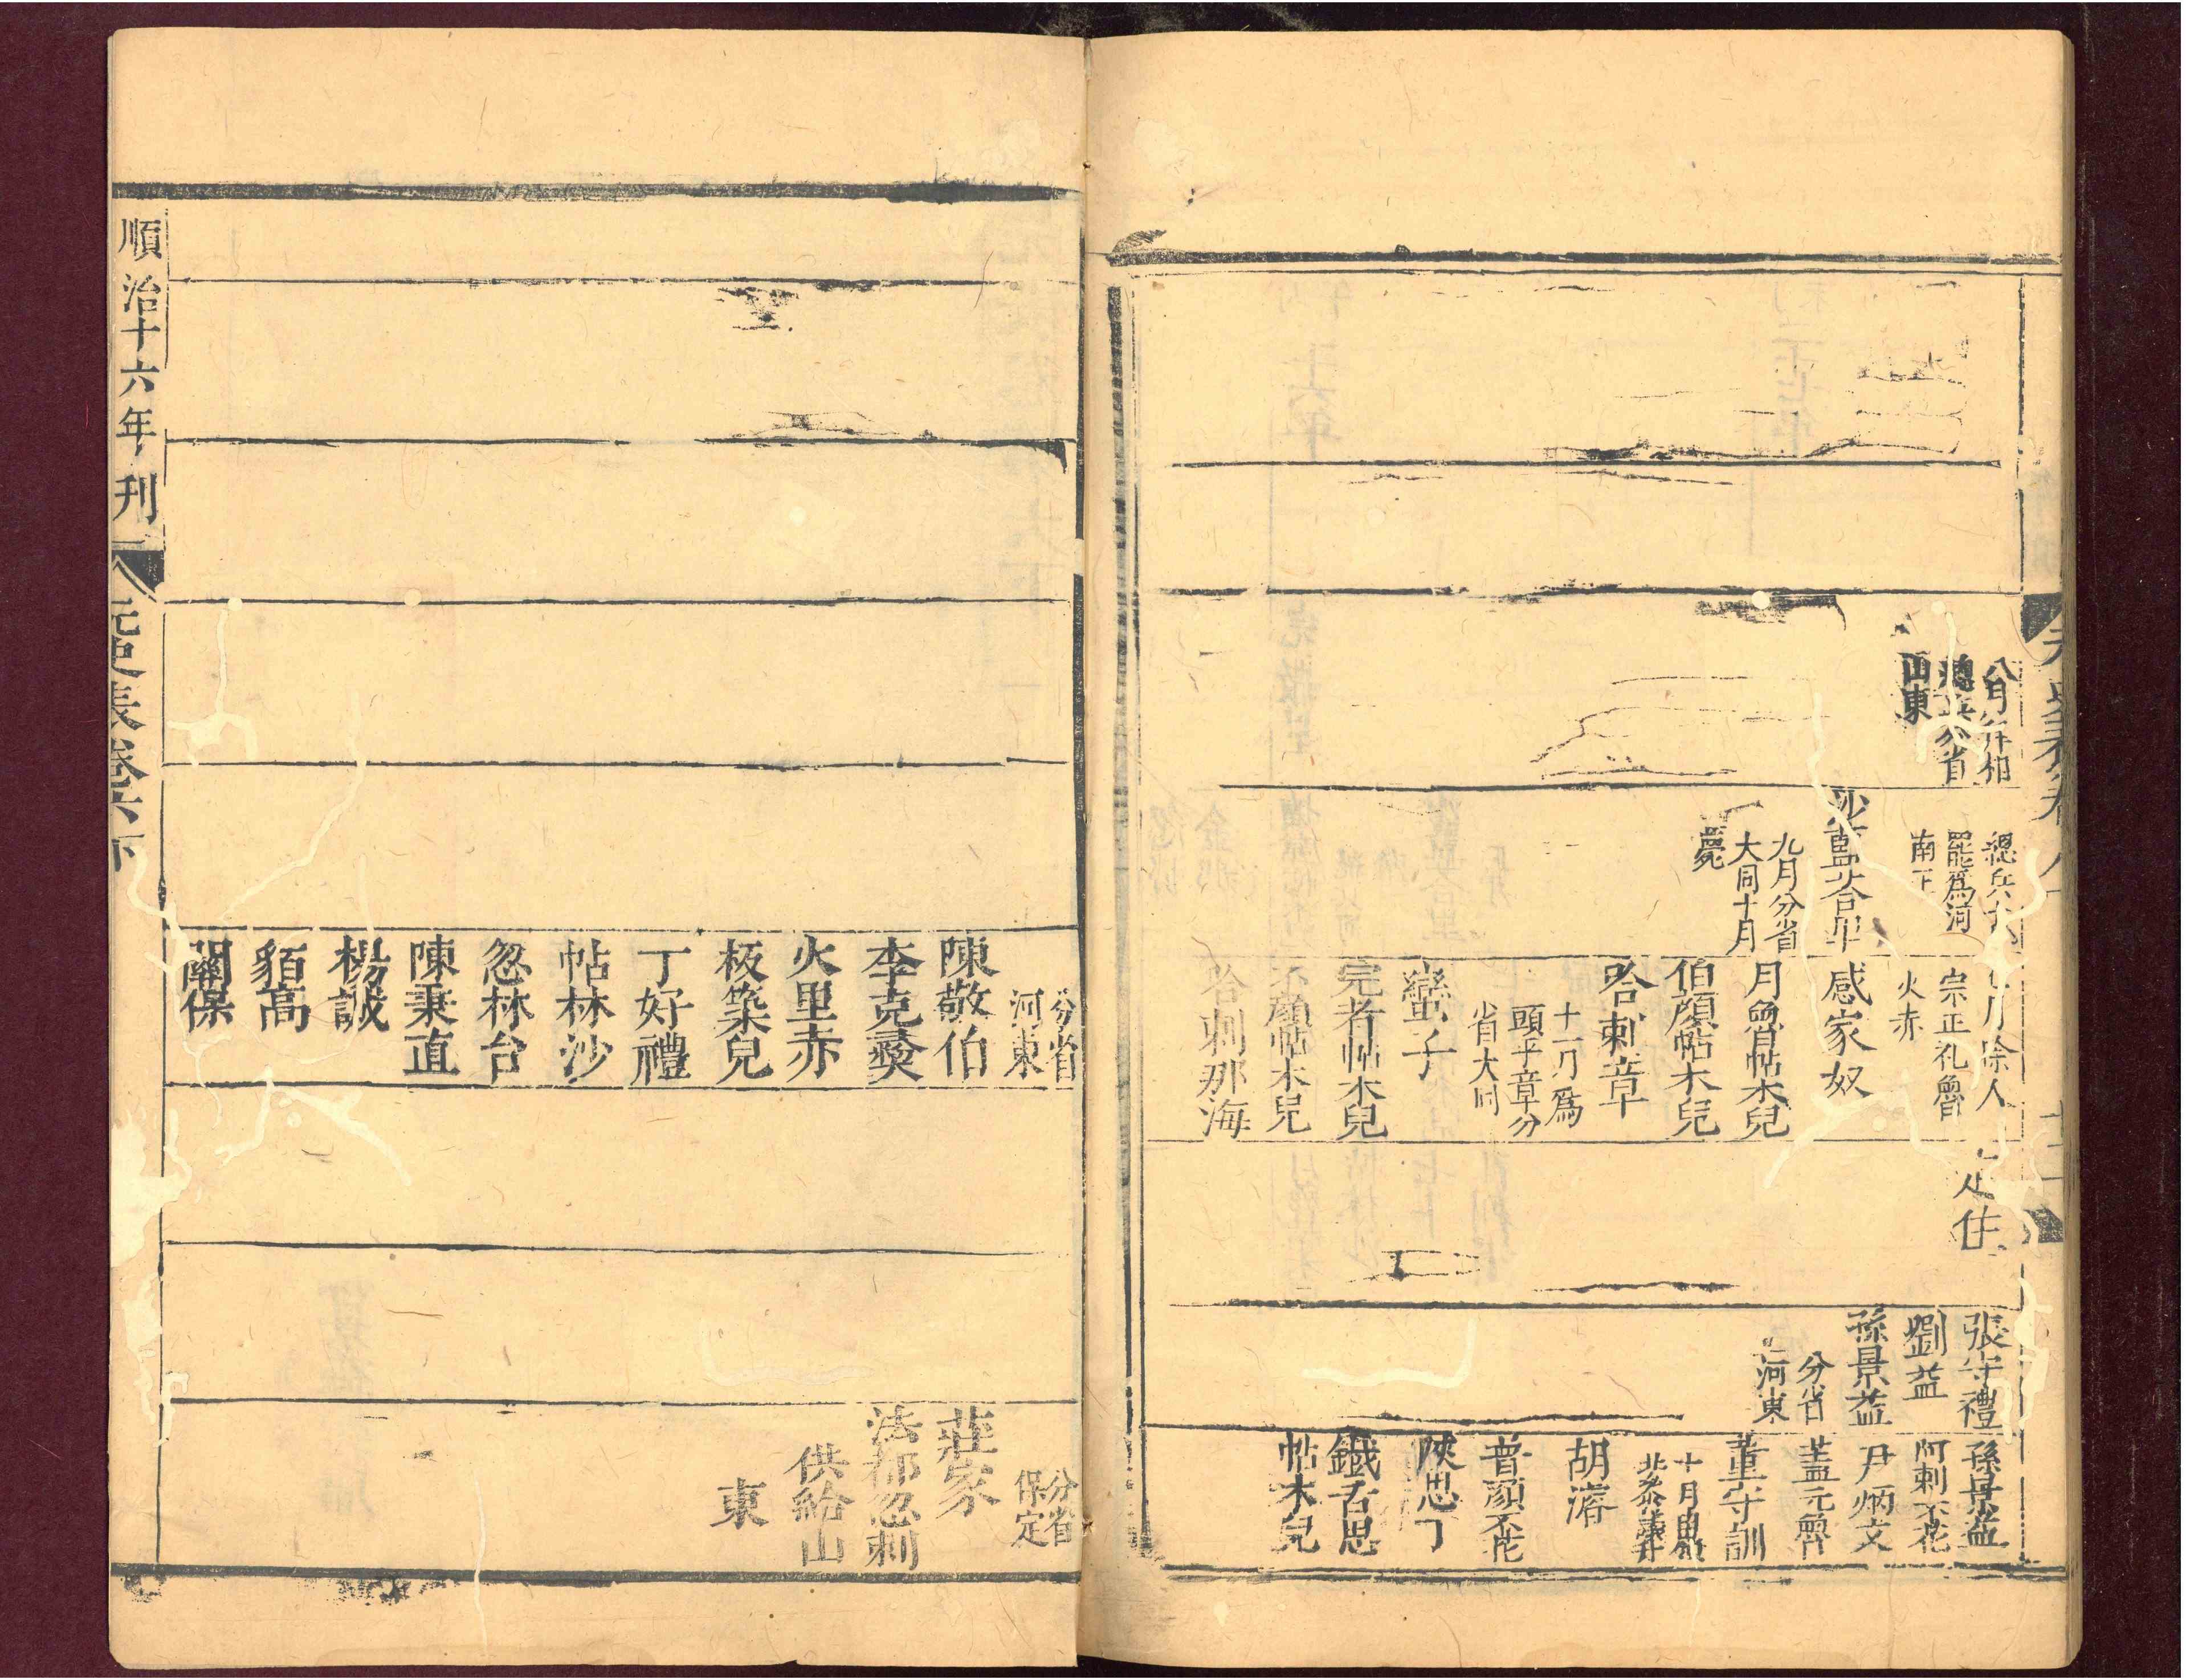 八月丞相
總兵分省
山東
罷爲河
九月分省
大同十月
薨
月除人
宗正札魯
火赤
感家奴
月魯帖木兒
伯顔帖木兒
哈剌章
十一月爲
頭平章分
省大同
蠻子
完者帖木兒
不顔帖木兒
哈剌那海
定住
張守禮
劉益
孫景益
分省
河東
孫景益
阿剌不花
尹炳文
蓋元魯
董守訓
十月
胡濬
普顔不花
陝思丁
鐵古思
帖木兒
分省
河東
陳敬伯
李克彛
火里赤
板築兒
丁好禮
帖林沙
忽林台
陳秉直
楊誠
貊高
關保
分省
保定
莊家
法都忽剌
供給山
東
順治十六年刊
元史表卷六下